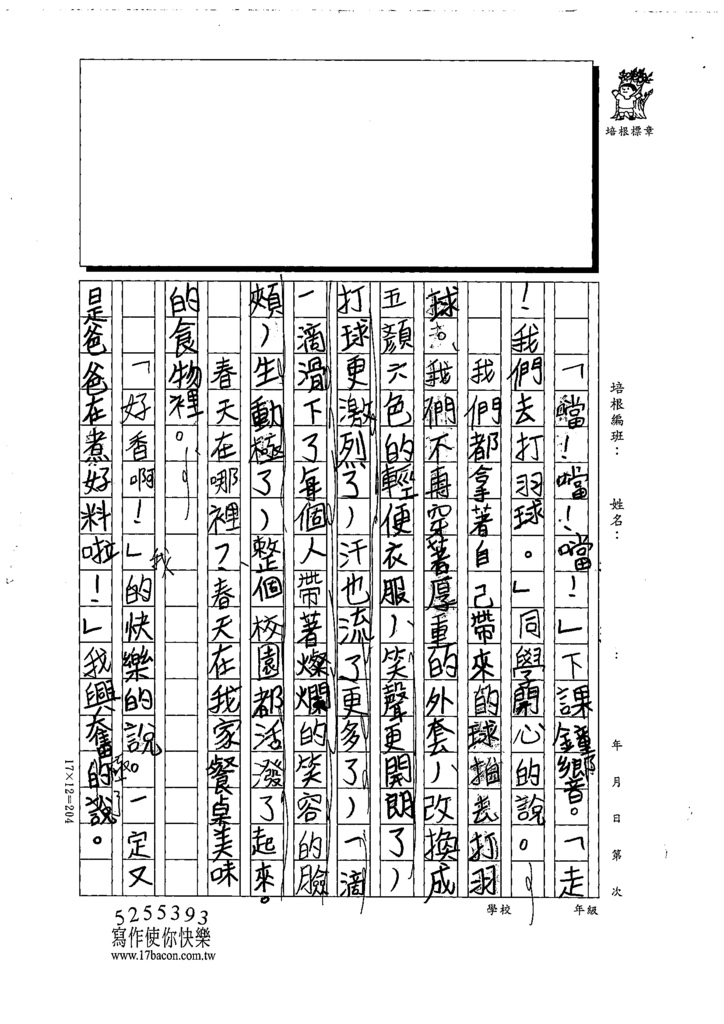 培根標章
培根編班：
姓名：
年 月 日 第 次
學校
年級
「噹！噹！噹！」下課鐘響。「走
！我們去打羽球。」同學開心的說。
我們都拿著自己帶來的球拍去打羽
球，我們不再穿著厚重的外套，改換成
五顏六色的輕便衣服，笑聲更開朗了，
打球更激烈了，汗也流了更多了，一滴
一滴滑下了每個人帶著燦爛的笑容的臉
頰，生動極了，整個校園都活潑了起來。
春天在哪裡？春天在我家餐桌美味
的食物裡。
「好香啊！」我的快樂的說。一定又
是爸爸在煮好料啦！」我興奮的說。
17×12=204
5255393
寫作使你快樂
www.17bacon.com.tw